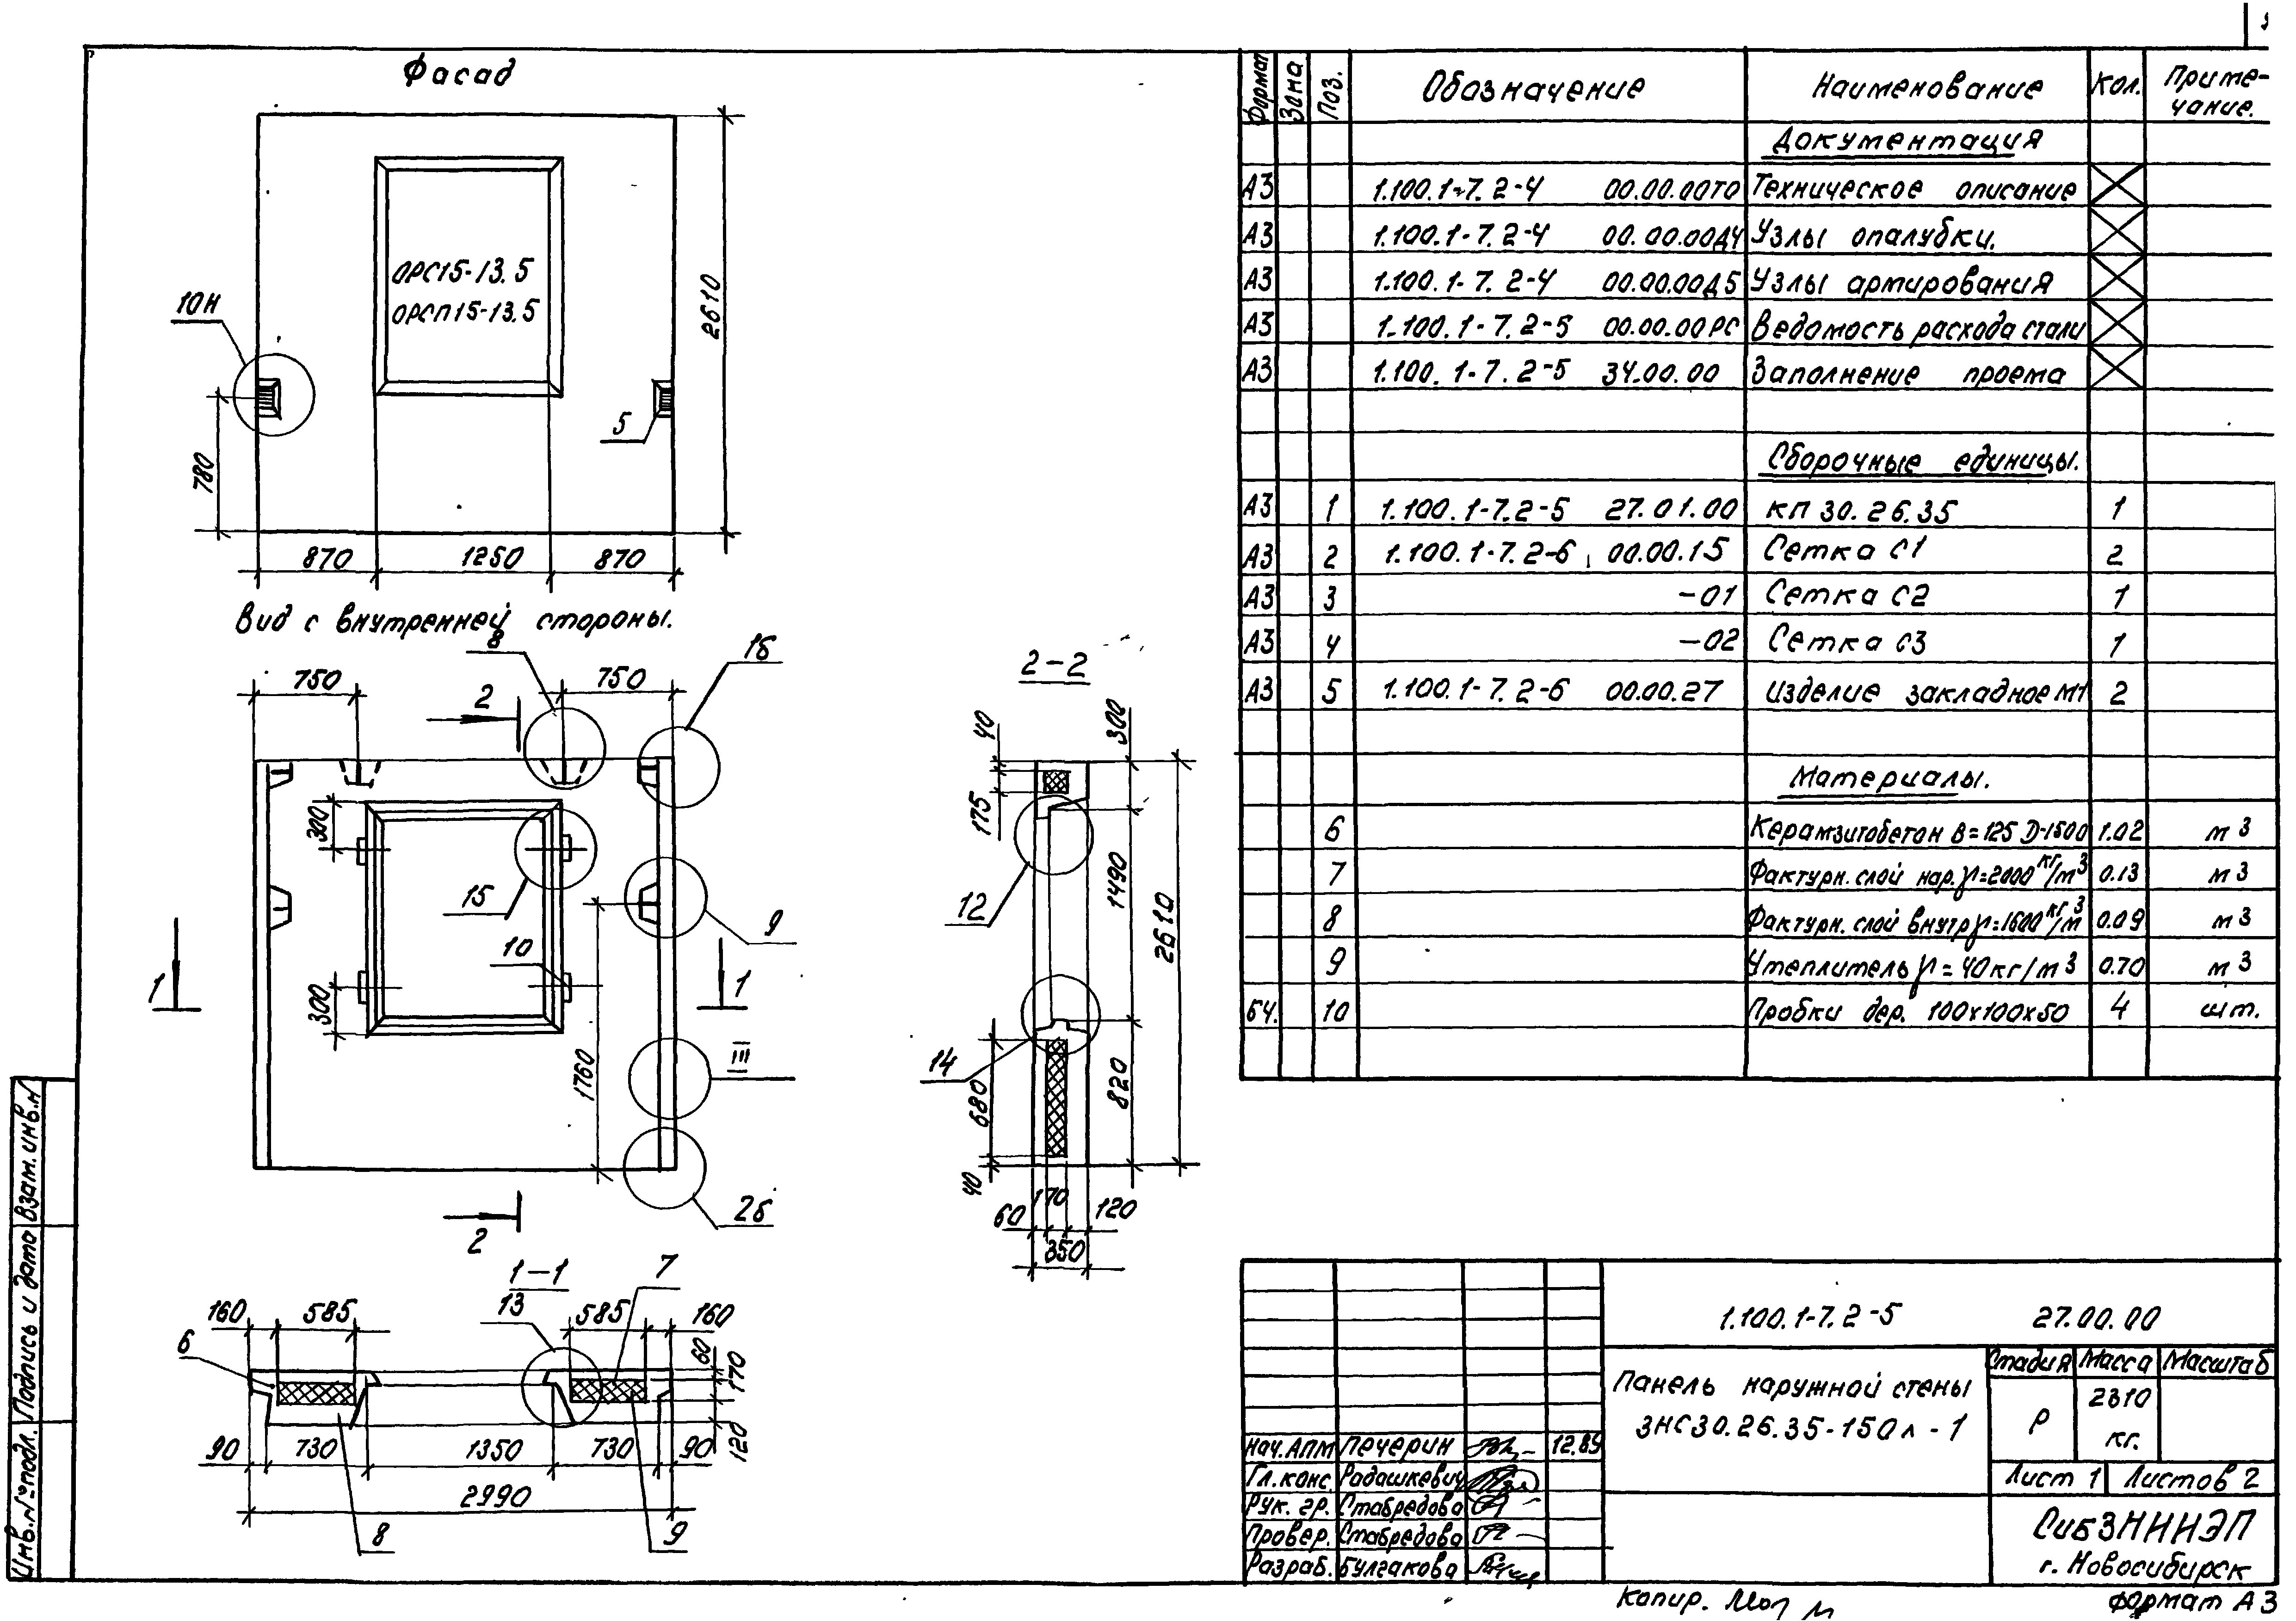 Фасад
ОРС15-13.5
ОРСП15-13.5
10Н
5
2610
780
870 1250 870
Вид с внутренней стороны.
8
1б
750 750
2
300
15
9
10
1 1
300
1760
III
2б
2
2-2
40
300
175
12
1490
2610
14
680
820
40
170
60 120
350
1-1
7
13
160 585 585 160
6
60
170
120
90 730 1350 730 90
2990
8 9
Формат Зона Поз. Обозначение Наименование Кол. Приме-
чание.
Документация
А3 1.100.1-7.2-4 00.00.00ТО Техническое описание
А3 1.100.1-7.2-4 00.00.00Д4 Узлы опалубки.
А3 1.100.1-7.2-4 00.00.00Д5 Узлы армирования
А3 1.100.1-7.2-5 00.00.00РС Ведомость расхода стали
А3 1.100.1-7.2-5 34.00.00 Заполнение проема
Сборочные единицы.
А3 1 1.100.1-7.2-5 27.01.00 КП 30.26.35 1
А3 2 1.100.1-7.2-6 00.00.15 Сетка С1 2
А3 3 -01 Сетка С2 1
А3 4 -02 Сетка С3 1
А3 5 1.100.1-7.2-6 00.00.27 Изделие закладное М1 2
Материалы.
6 Керамзитобетон В=125 D-1500 1.02 м3
7 Фактурн. слой нар. γ=2000 кг/м3 0.13 м3
8 Фактурн. слой внутр γ=1600 кг/м3 0.09 м3
9 Утеплитель γ=40кг/м3 0.70 м3
БЧ. 10 Пробки дер. 100х100х50 4 шт.
1.100.1-7.2-5 27.00.00
Панель наружной стены
3НС30.26.35-150л-1
Стадия Масса Масштаб
Р 2310
кг.
Лист 1 Листов 2
СибЗНИИЭП
г. Новосибирск
Нач.АПМ Печерин 12.89
Гл.конс. Радашкевич
Рук. гр. Стабредова
Провер. Стабредова
Разраб. Булгакова
Инв.№подл. Подпись и дата Взам.инв.№
Копир.
формат А3